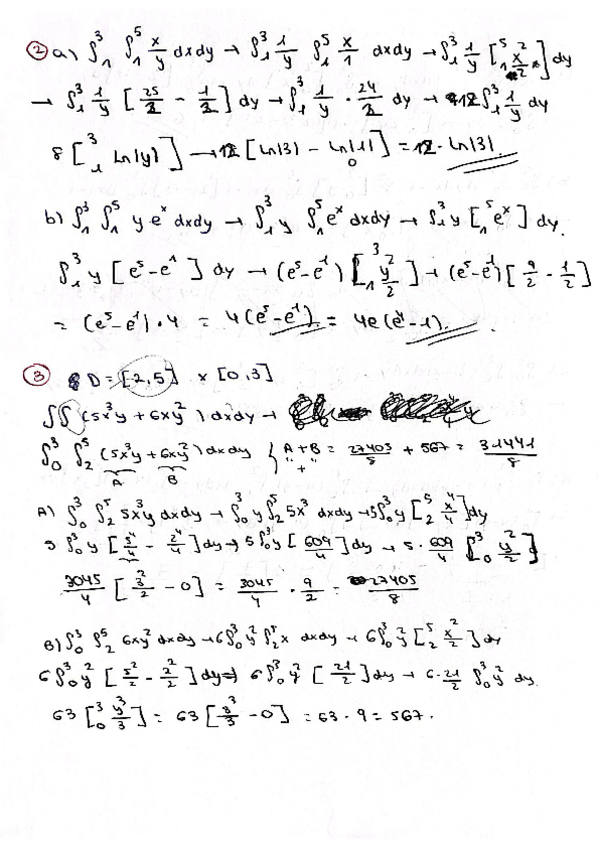 ② a) ∫₁³ ∫₁⁵ x/y dxdy → ∫₁³ 1/y ∫₁⁵ x/1 dxdy → ∫₁³ 1/y [₁⁵ x²/2] dy
→ ∫₁³ 1/y [25/2 - 1/2] dy → ∫₁³ 1/y · 24/2 dy → 12 ∫₁³ 1/y dy
8 [₁³ ln|y|] → 12 [ln|3| - ln|1|] = 12 · ln|3|
0
b) ∫₁³ ∫₁⁵ y eˣ dxdy → ∫₁³ y ∫₁⁵ eˣ dxdy → ∫₁³ y [₁⁵ eˣ] dy
∫₁³ y [e⁵-e¹] dy → (e⁵-e¹) [₁³ y²/2] → (e⁵-e¹) [9/2 - 1/2]
= (e⁵-e¹) · 4 = 4(e⁵-e¹) = 4e(e⁴-1).
③ D = [-2,5] x [0,3]
∫∫ (5x³y + 6xy²) dxdy →
∫₀³ ∫₂⁵ (5x³y + 6xy²) dxdy { A+B = 27405/8 + 567 = 31441/8
A B "+"
A) ∫₀³ ∫₂⁵ 5x³y dxdy → ∫₀³ y ∫₂⁵ 5x³ dxdy → 5∫₀³ y [₂⁵ x⁴/4] dy
5 ∫₀³ y [5⁴/4 - 2⁴/4] dy → 5 ∫₀³ y [609/4] dy → 5 · 609/4 [₀³ y²/2]
3045/4 [3²/2 - 0] = 3045/4 · 9/2 = 27405/8
B) ∫₀³ ∫₂⁵ 6xy² dxdy → 6∫₀³ y² ∫₂⁵ x dxdy → 6∫₀³ y² [₂⁵ x²/2] dy
6∫₀³ y² [5²/2 - 2²/2] dy → 6∫₀³ y² [21/2] dy → 6·21/2 ∫₀³ y² dy.
63 [₀³ y³/3] = 63 [3³/3 - 0] = 63 · 9 = 567.